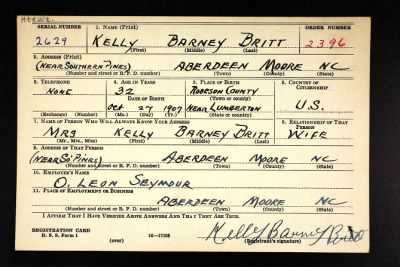 SERIAL NUMBER 1. NAME (Print) ORDER NUMBER
2629 KELLY BARNEY BRITT 2396
(First) (Middle) (Last)
2. ADDRESS (Print)
(NEAR SOUTHERN PINES) ABERDEEN MOORE NC
(Number and street or R. F. D. number) (Town) (County) (State)
3. TELEPHONE 4. AGE IN YEARS 5. PLACE OF BIRTH 6. COUNTRY OF CITIZENSHIP
NONE 32 ROBESON COUNTY
DATE OF BIRTH (Town or county)
OCT 27 1907 NEAR LUMBERTON U.S.
(Exchange) (Number) (Mo.) (Day) (Yr.) (State or country)
7. NAME OF PERSON WHO WILL ALWAYS KNOW YOUR ADDRESS 8. RELATIONSHIP OF THAT PERSON
MRS KELLY BARNEY BRITT WIFE
(Mr., Mrs., Miss) (First) (Middle) (Last)
9. ADDRESS OF THAT PERSON
(NEAR SO. PINES) ABERDEEN MOORE NC
(Number and street or R. F. D. number) (Town) (County) (State)
10. EMPLOYER'S NAME
O. LEON SEYMOUR
11. PLACE OF EMPLOYMENT OR BUSINESS
ABERDEEN MOORE NC
(Number and street or R. F. D. number) (Town) (County) (State)
I AFFIRM THAT I HAVE VERIFIED ABOVE ANSWERS AND THAT THEY ARE TRUE.
REGISTRATION CARD Kelly Barney Britt
D. S. S. Form 1 (over) 16—17105 (Registrant's signature)